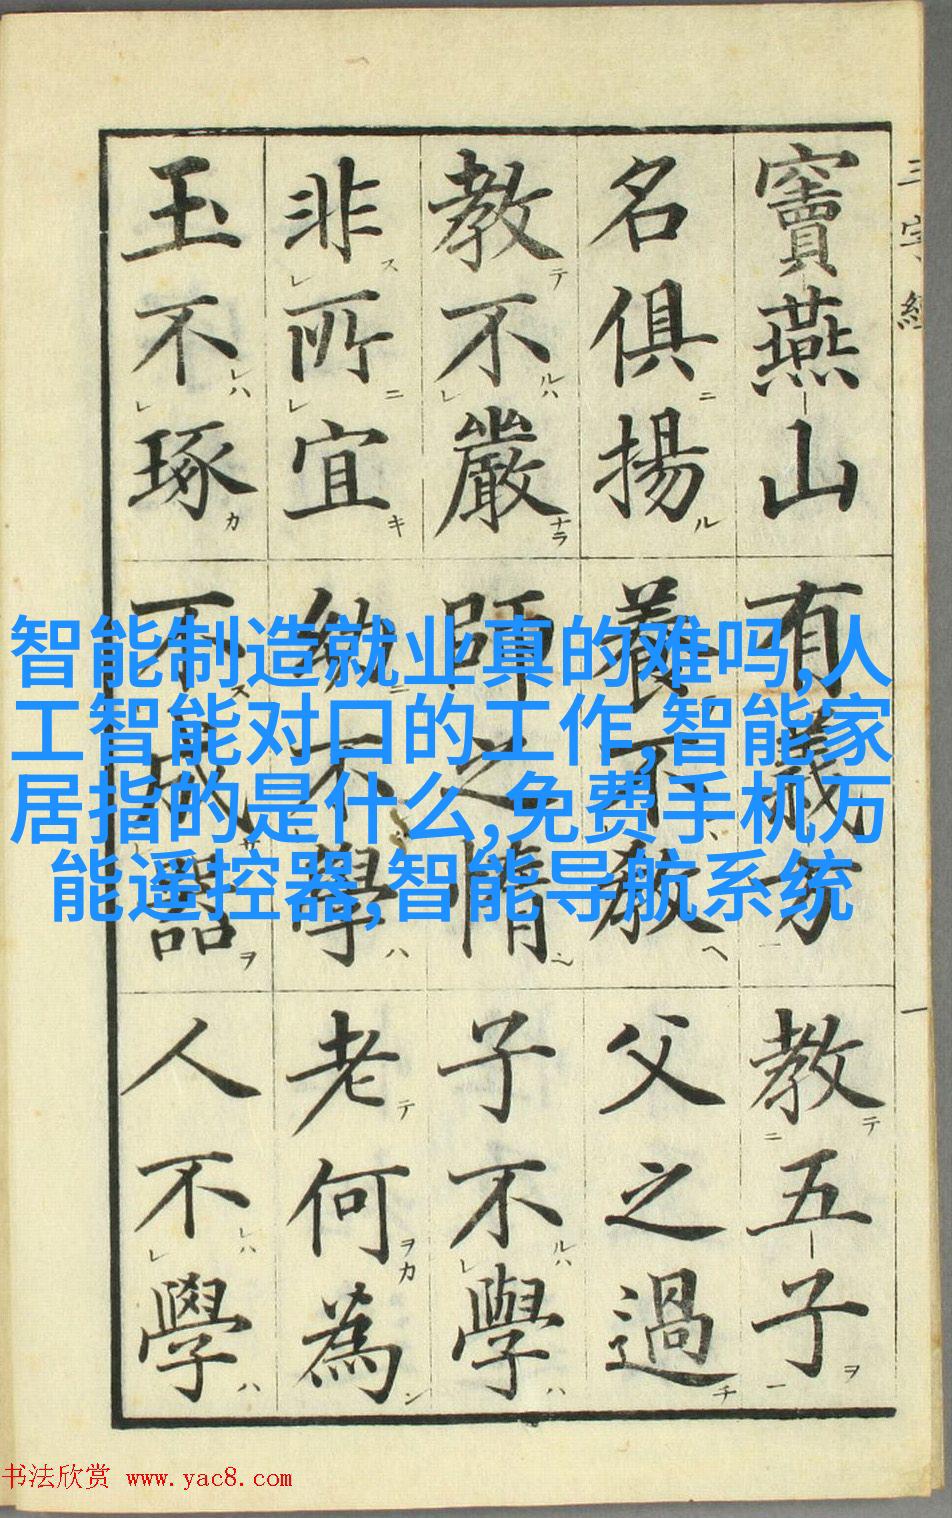 三字經
竇燕山有義方教五子
名俱揚養不教父之過
教不嚴師之惰子不學
非所宜幼不學老何為
玉不琢不成器人不學
一
智能制造就业真的难吗,人
工智能对口的工作,智能家
居指的是什么,免费手机万
能遥控器,智能导航系统
书法欣赏 www.yac8.com